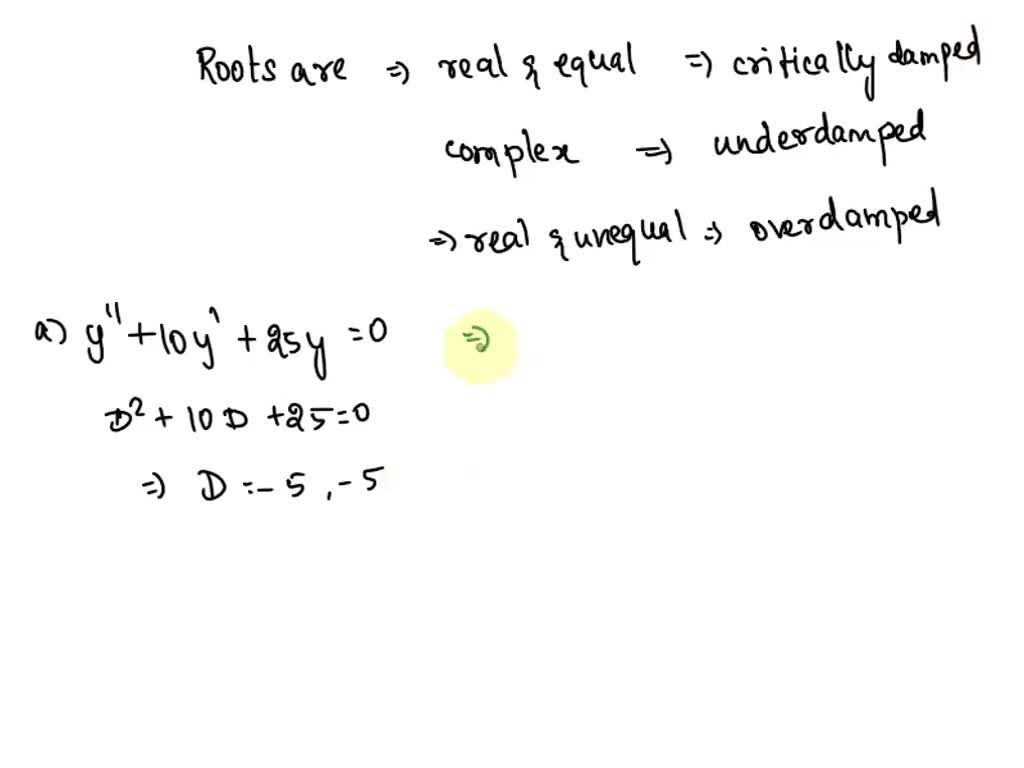 Roots are ⇒ real & equal ⇒ critically damped
complex ⇒ underdamped
⇒ real & unequal ⇒ overdamped
a) y'' + 10y' + 25y = 0 ⇒
D² + 10 D + 25 = 0
⇒ D = - 5 , - 5